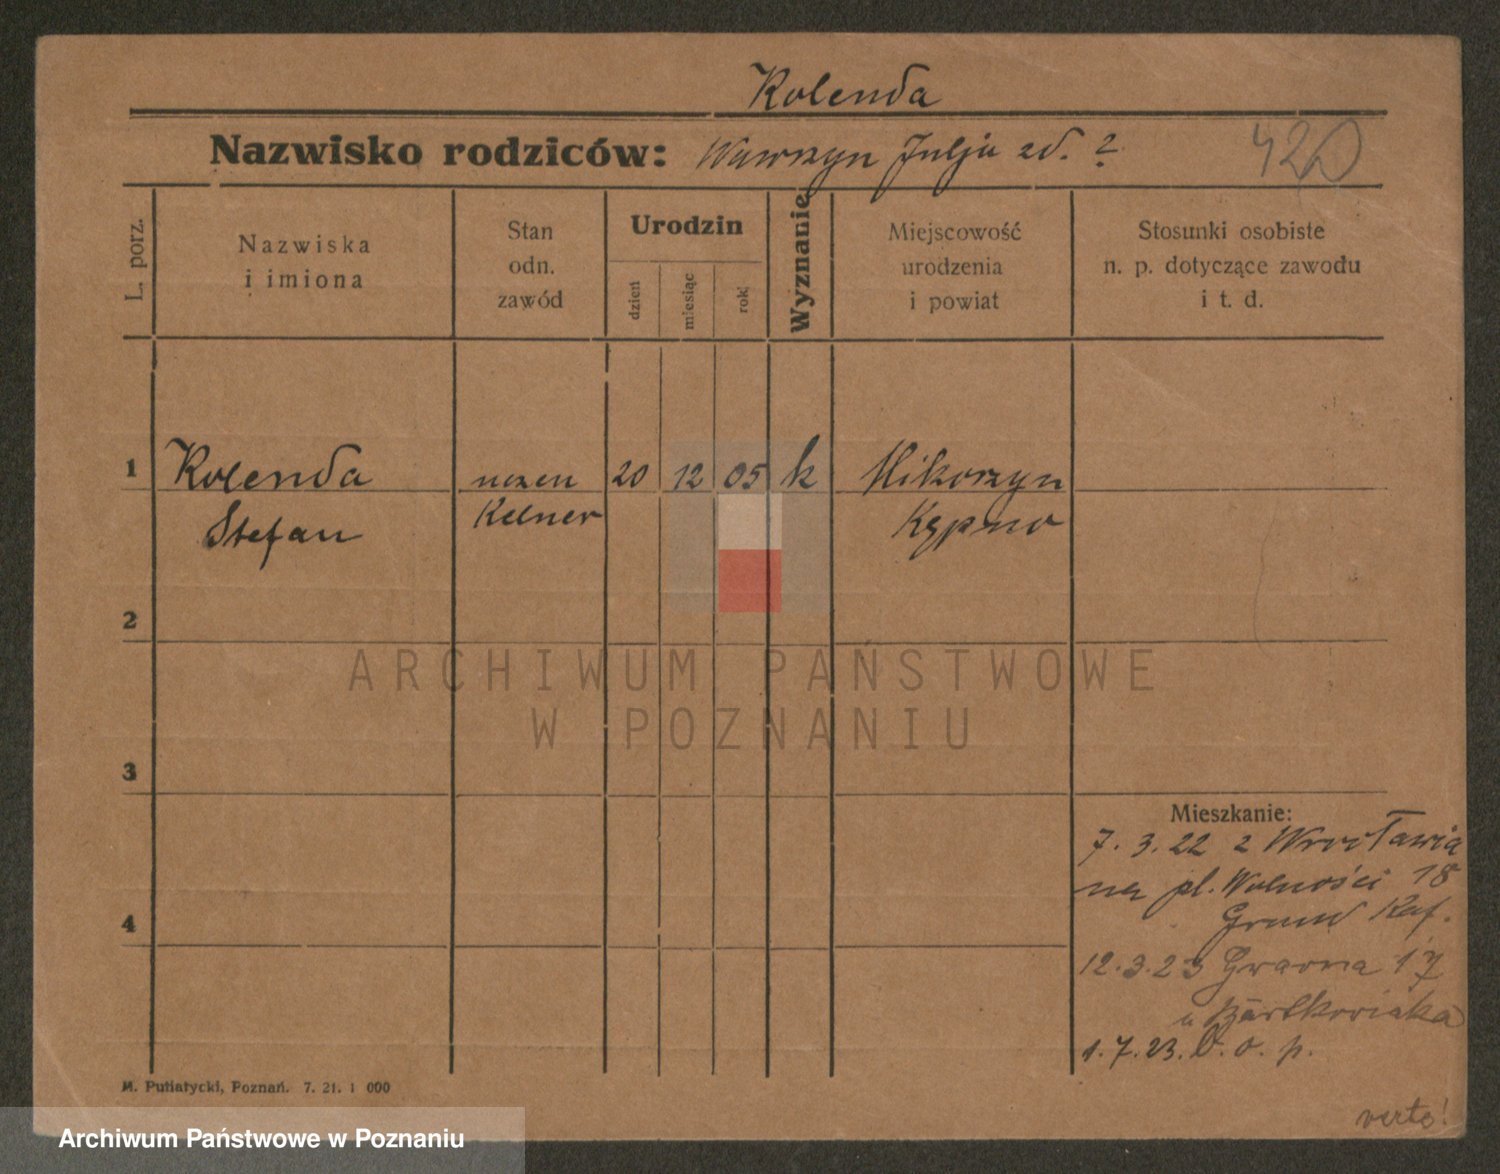 Kolenda
Nazwisko rodziców: Wawrzyn Julja zd. ?
420
L. porz.
Nazwiska
i imiona
Stan
odn.
zawód
Urodzin
dzień
miesiąc
rok
Wyznanie
Miejscowość
urodzenia
i powiat
Stosunki osobiste
n. p. dotyczące zawodu
i t. d.
1 Kolenda uczen 20 12 05 k Mikorzyn
Stefan Kelner Kępno
2
3
4
Mieszkanie:
7. 3. 22 z Wrocławia
na pl. Wolności 18
Grand Kaf.
12.3.23 Gwarna 17
u Bartkowiaka
1.7.23. b. o. p.
M. Putiatycki, Poznań. 7. 21. 1 000
verte!
ARCHIWUM PAŃSTWOWE
W POZNANIU
Archiwum Państwowe w Poznaniu